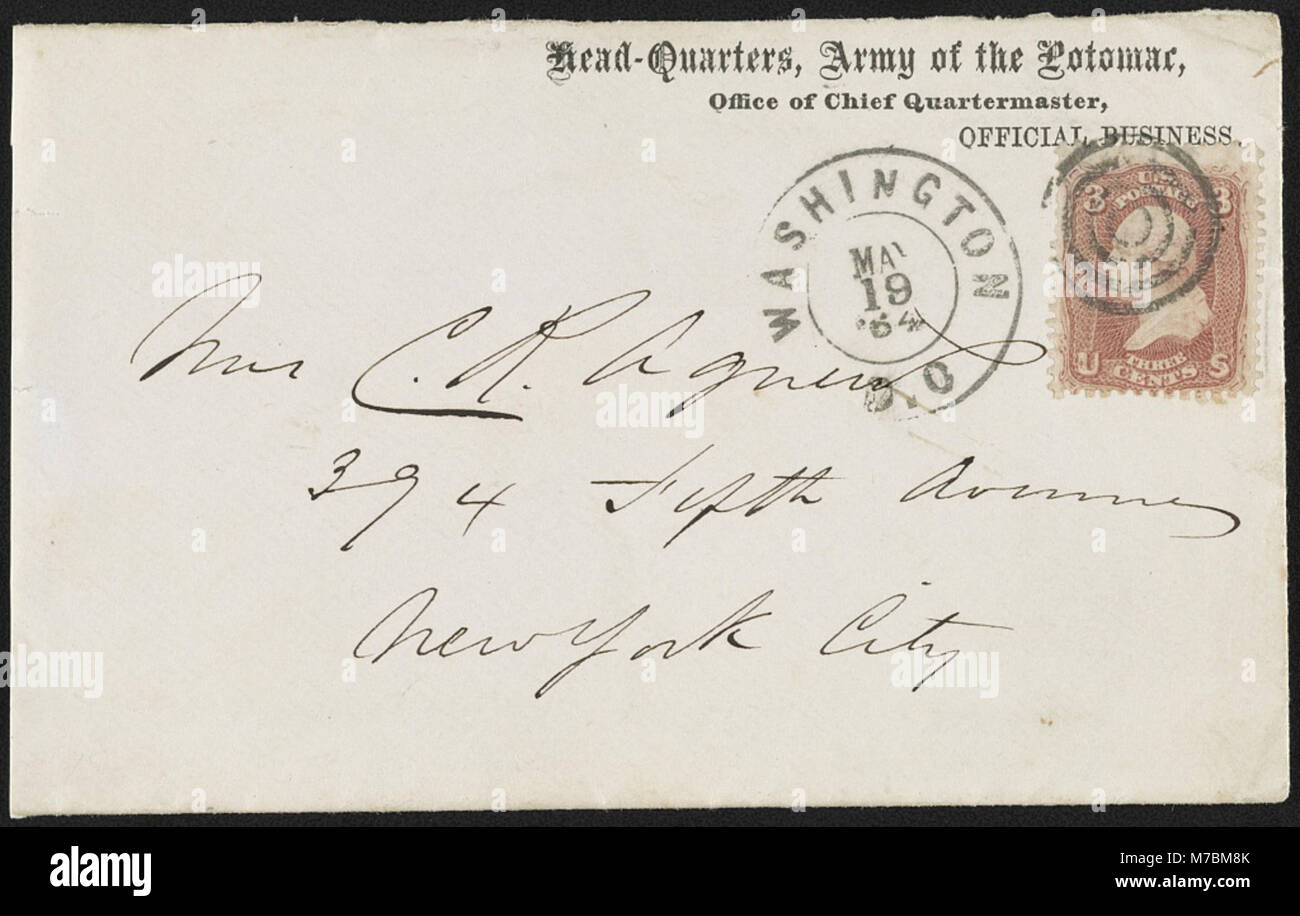 Head-Quarters, Army of the Potomac,
Office of Chief Quartermaster,
OFFICIAL BUSINESS.
WASHINGTON
MAY
19
'64
D.C
3 3
U.S.
POSTAGE
U S
THREE
CENTS
Mrs C. R. Agnew
394 Fifth Avenue
New York City
alamy
Image ID: M7BM8K
www.alamy.com